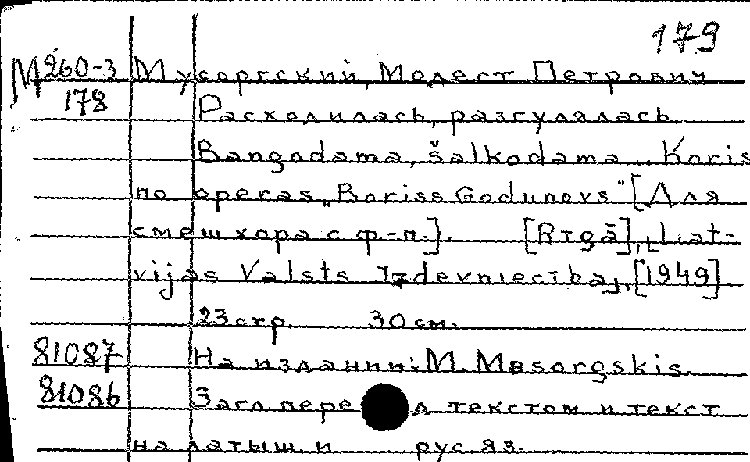 179
М 260-3 Мусоргский, Модест Петрович
178 Расходилась, разгулялась
Bangodama, šalkodama... Koris
no operas „Boriss Godunovs" [Для
смеш хора с ф-п.]. [Rīgā], [Lat-
vijas Valsts Izdevniecība], [1949]
23 стр. 30 см.
81087 На издании: M. Musorgskis.
81086 Загл перед текстом и текст
на латыш. и рус. яз.